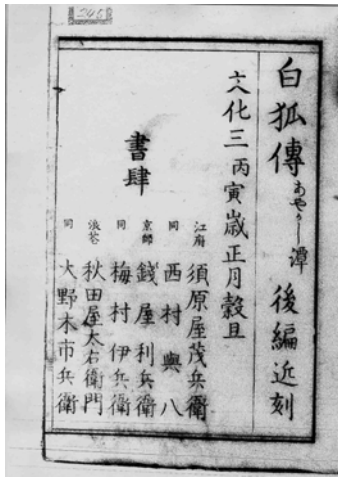 白狐傳 あやかし譚 後編近刻
文化三丙寅歳正月穀旦
書肆
江府 須原屋茂兵衛
同 西村與八
京師 錢屋利兵衛
同 梅村伊兵衛
浪花 秋田屋太右衛門
同 大野木市兵衛